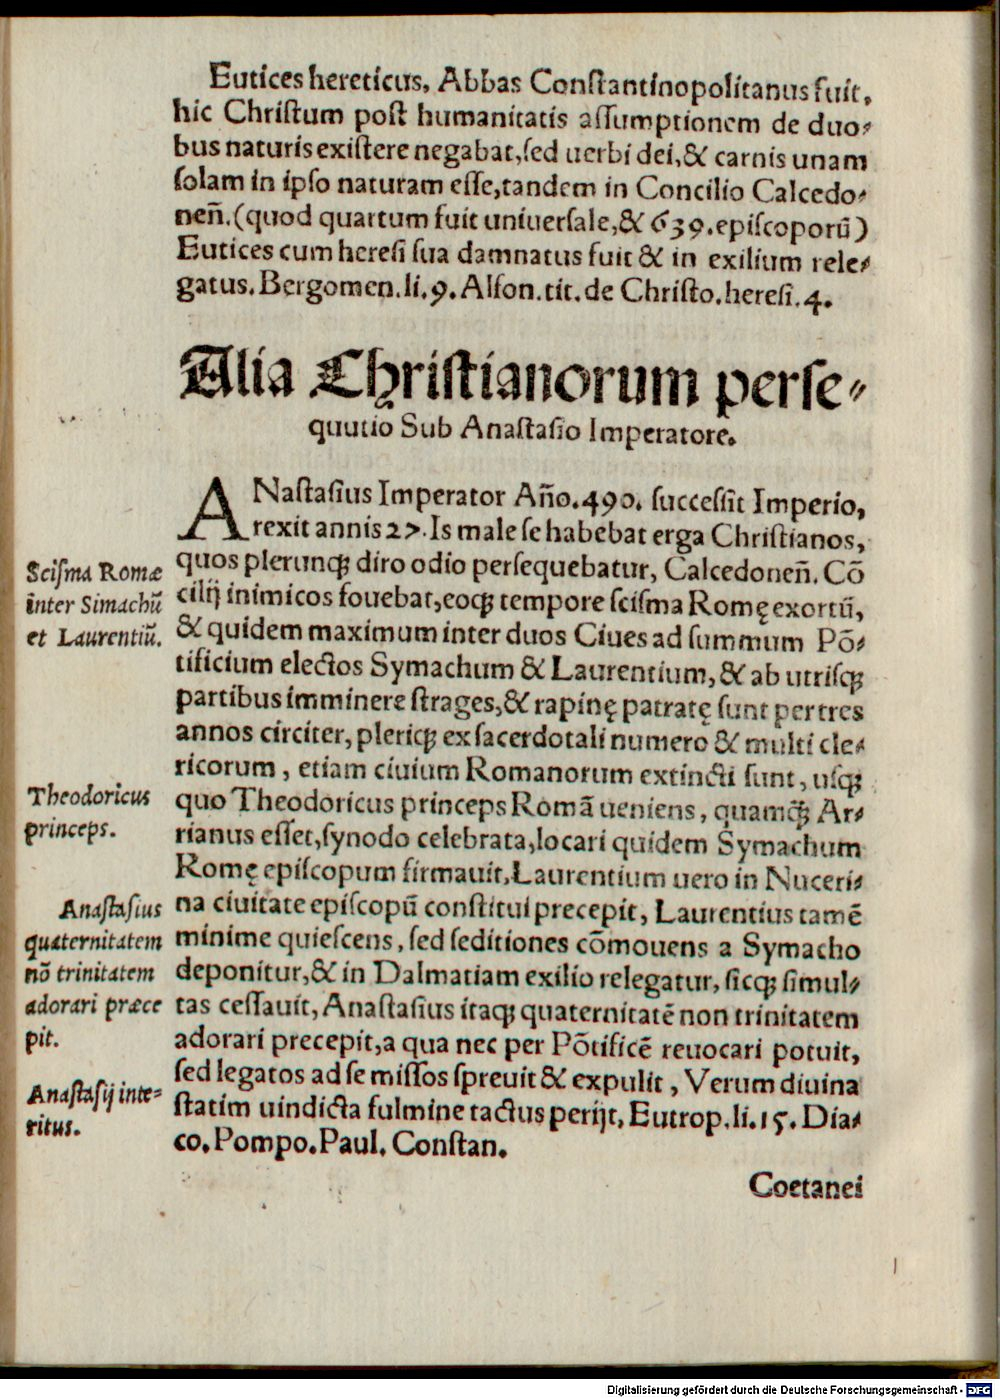 Eutices hereticus, Abbas Constantinopolitanus fuit,
hic Christum post humanitatis assumptionem de duo⸗
bus naturis existere negabat, sed uerbi dei, & carnis unam
solam in ipso naturam esse, tandem in Concilio Calcedo⸗
neñ. (quod quartum fuit uniuersale, & 639. episcoporũ)
Eutices cum heresi sua damnatus fuit & in exilium rele⸗
gatus. Bergomen. li. 9. Alfon. tit. de Christo. heresi. 4.
Alia Christianorum perse⸗
quutio Sub Anastasio Imperatore.
ANastasius Imperator Año. 490. successit Imperio,
rexit annis 27. Is male se habebat erga Christianos,
quos plerunq; diro odio persequebatur, Calcedoneñ. Cõ
Scisma Romæ
inter Simachũ
et Laurentiũ.
cilij inimicos fouebat, eoq; tempore scisma Romę exortũ,
& quidem maximum inter duos Ciues ad summum Põ⸗
tificium electos Symachum & Laurentium, & ab utrisq;
partibus imminere strages, & rapinę patratę sunt per tres
annos circiter, pleriq; ex sacerdotali numero & multi cle⸗
ricorum, etiam ciuium Romanorum extincti sunt, usq;
Theodoricus
princeps.
quo Theodoricus princeps Romã ueniens, quamq; Ar⸗
rianus esset, synodo celebrata, locari quidem Symachum
Romę episcopum firmauit, Laurentium uero in Nuceri⸗
Anastasius
quaternitatem
nõ trinitatem
adorari præce
pit.
na ciuitate episcopũ constitui precepit, Laurentius tamẽ
minime quiescens, sed seditiones cõmouens a Symacho
deponitur, & in Dalmatiam exilio relegatur, sicq; simul⸗
tas cessauit, Anastasius itaq; quaternitatẽ non trinitatem
adorari precepit, a qua nec per Põtificẽ reuocari potuit,
Anastasij inte⸗
ritus.
sed legatos ad se missos spreuit & expulit, Verum diuina
statim uindicta fulmine tactus perijt, Eutrop. li. 15. Dia⸗
co. Pompo. Paul. Constan.
Coetanei
Digitalisierung gefördert durch die Deutsche Forschungsgemeinschaft - DFG